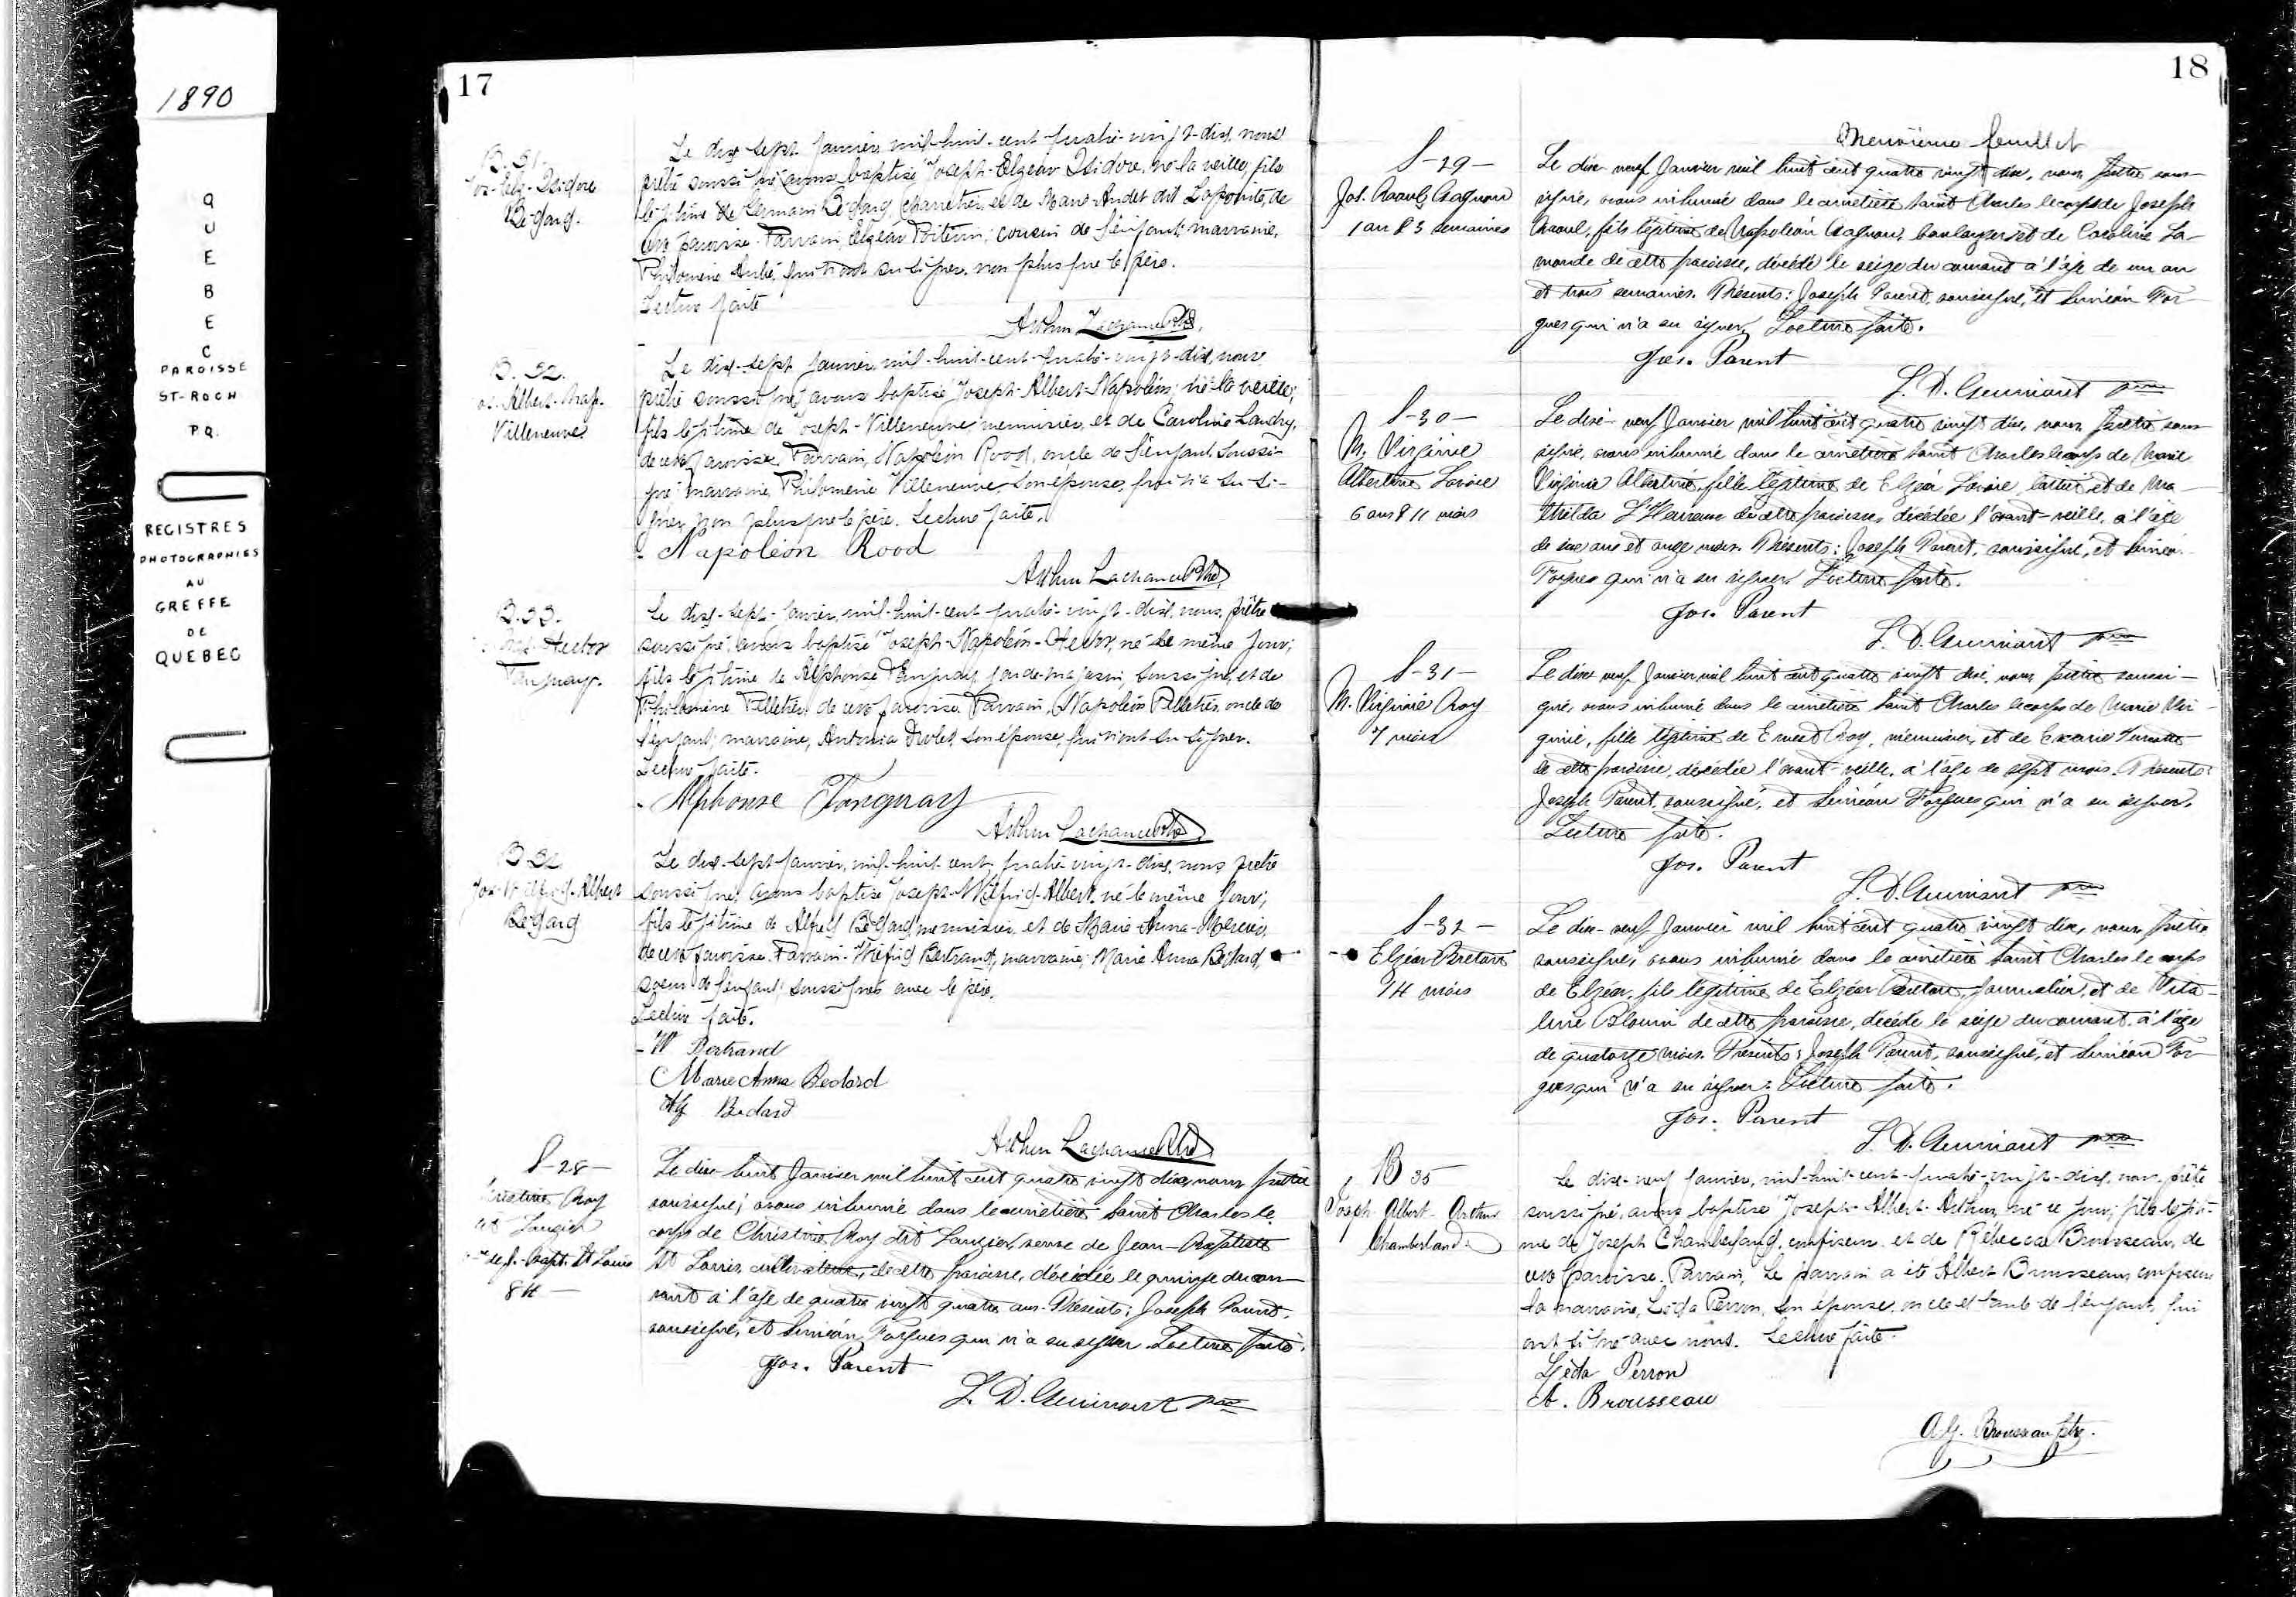 1890
QUEBEC
PAROISSE
ST-ROCH
P.Q.
REGISTRES
PHOTOGRAPHIES
AU
GREFFE
DE
QUEBEC
17
B. 31.
Jos-Elz-Isidore
Bédard.
Le dix-sept janvier, mil-huit-cent-quatre-vingt-dix, nous
prêtre soussigné avons baptisé Joseph-Elzéar Isidore, né la veille, fils
légitime de Germain Bédard, charretier, et de Marie Audet dit Lapointe, de
cette paroisse. Parrain, Elzéar Poitevin, cousin de l'enfant; marraine,
Philomène Aubé, qui n'ont su signer, non plus que le père.
Lecture faite
Arthur Lachance Ptre,
B. 32.
Albert-Nap.
Villeneuve
Le dix-sept janvier, mil-huit-cent-quatre-vingt-dix, nous
prêtre soussigné avons baptisé Joseph-Albert-Napoléon, né la veille,
fils légitime de Joseph-Villeneuve, menuisier, et de Caroline Landry,
de cette paroisse. Parrain, Napoléon Rood, oncle de l'enfant soussi-
gné; marraine, Philomène Villeneuve, son épouse, qui n'a su si-
gner, non plus que le père. Lecture faite.
Napoléon Rood
Arthur Lachance Ptre
B. 33.
Nap-Hector
Tanguay.
Le dix-sept-janvier, mil-huit-cent-quatre-vingt-dix, nous, prêtre
soussigné, avons baptisé Joseph-Napoléon-Hector, né le même jour,
fils légitime de Alphonse Tanguay, garde-magasin, soussigné, et de
Philomène Pelletier, de cette paroisse. Parrain, Napoléon Pelletier, oncle de
l'enfant; marraine, Antonia Drolet, son épouse, qui n'ont su signer.
Lecture faite.
Alphonse Tanguay
Arthur Lachance Ptre
B 34
Jos-Wilfrid-Albert
Bédard
Le dix-sept janvier, mil-huit-cent-quatre-vingt-dix, nous prêtre
soussigné, avons baptisé Joseph-Wilfrid-Albert, né le même jour,
fils légitime de Alfred Bédard, menuisier, et de Marie Anna-Mercier,
de cette paroisse. Parrain-Wilfrid Bertrand, marraine, Marie Anna Bédard,
soeur de l'enfant soussignés avec le père.
Lecture faite.
W Bertrand
Marie Anna Bedard
Alf Bedard
Arthur Lachance Ptre
S-28-
Christine Roy
dit Lauzier
de J.-Bapt. St Louis
84-
Le dix-huit Janvier mil huit cent quatre vingt dix, nous prêtre
soussigné, avons inhumé dans le cimetière Saint Charles le
corps de Christine Roy dit Lauzier, veuve de Jean-Baptiste
St Louis, cultivateur, de cette paroisse, décédée le quinze du cou-
rant à l'âge de quatre vingt quatre ans. Présents; Joseph Parent,
soussigné, et Siméon Forgues qui n'a su signer. Lecture faite.
Jos. Parent
L. D. Guimont ptre
18
Neuvième feuillet
S-29-
Jos. Raoul Gagnon
1 an & 3 semaines
Le dix neuf Janvier mil huit cent quatre vingt dix, nous prêtre sous-
signé, avons inhumé dans le cimetière Saint Charles le corps de Joseph
Raoul, fils légitime de Napoléon Gagnon, boulanger et de Caroline La-
monde de cette paroisse, décédé le seize du courant à l'âge de un an
et trois semaines. Présents: Joseph Parent, soussigné, et Siméon For-
gues qui n'a su signer. Lecture faite.
Jos. Parent
L. D. Guimont ptre
S-30-
M. Virginie
Albertine Lavoie
6 ans & 11 mois
Le dix-neuf Janvier mil huit cent quatre vingt dix, nous prêtre sous-
signé, avons inhumé dans le cimetière Saint Charles le corps de Marie
Virginie Albertine, fille légitime de Elzéar Lavoie laitier et de Ma-
thilda L'Heureux de cette paroisse, décédée l'avant-veille, à l'âge
de six ans et onze mois. Présents: Joseph Parent, soussigné, et Siméon
Forgues qui n'a su signer. Lecture faite.
Jos. Parent
L. D. Guimont ptre
S-31-
M. Virginie Roy
7 mois
Le dix neuf Janvier mil huit cent quatre vingt dix, nous prêtre soussi-
gné, avons inhumé dans le cimetière Saint Charles le corps de Marie Vir-
ginie, fille légitime de Ernest Roy, menuisier, et de Exarie Turcotte
de cette paroisse, décédée l'avant-veille, à l'âge de sept mois. Présents:
Joseph Parent, soussigné, et Siméon Forgues qui n'a su signer.
Lecture faite.
Jos. Parent
L. D. Guimont ptre
S-32-
Elzéar Breton
14 mois
Le dix-neuf Janvier mil huit cent quatre vingt dix, nous prêtre
soussigné, avons inhumé dans le cimetière Saint Charles le corps
de Elzéar, fils légitime de Elzéar Breton, journalier, et de Vita-
line Blouin de cette paroisse, décédé le seize du courant à l'âge
de quatorze mois. Présents: Joseph Parent, soussigné, et Siméon For-
gues qui n'a su signer. Lecture faite.
Jos. Parent
L. D. Guimont ptre
B 35
Joseph-Albert-Arthur
Chamberland
Le dix-neuf janvier, mil-huit-cent-quatre-vingt-dix, nous prêtre
soussigné, avons baptisé Joseph-Albert-Arthur, né ce jour, fils légiti-
me de Joseph Chamberland, confiseur, et de Rébecca Brousseau, de
cette paroisse. Parrain, Le parrain a été Albert Brousseau, confiseur
la marraine, Léda Perron, son épouse, oncle et tante de l'enfant, qui
ont signé avec nous. Lecture faite.
Léda Perron
A. Brousseau
A.G. Brousseau ptre.